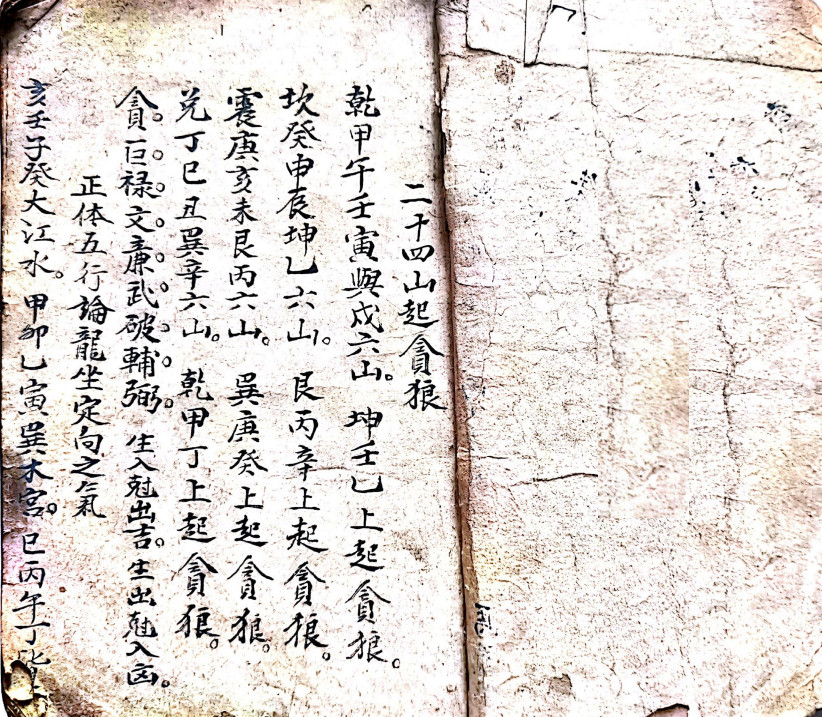 二十四山起貪狼
乾甲午壬寅與戍六山。坤壬乙上起貪狼。
坎癸申辰坤乙六山。艮丙辛上起貪狼。
震庚亥未艮丙六山。巽庚癸上起貪狼。
兑丁巳丑巽辛六山。乾甲丁上起貪狼。
貪。巨。禄。文。廉。武。破。輔。弼。生入尅出吉。生出尅入凶。
正体五行論龍坐定向之氣
亥壬子癸大江水。甲卯乙寅巽木宮。巳丙午丁皆